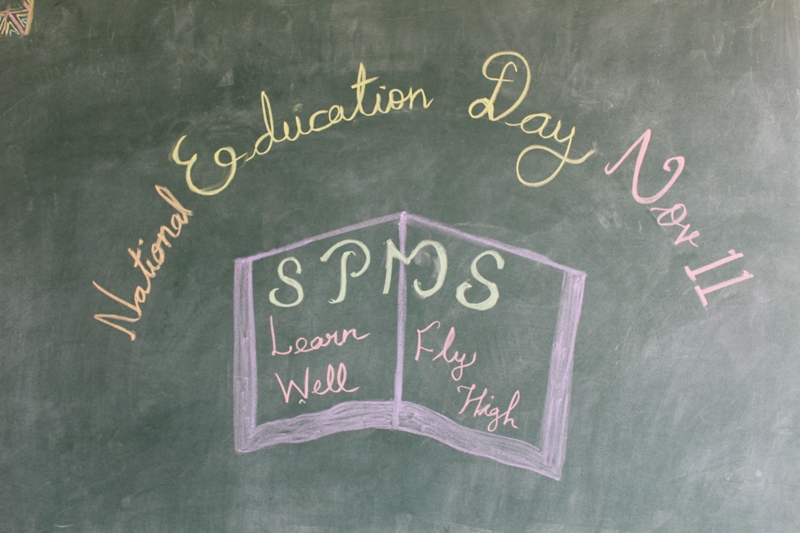 National Education Day Nov 11
SPMS
Learn
Well
Fly
High